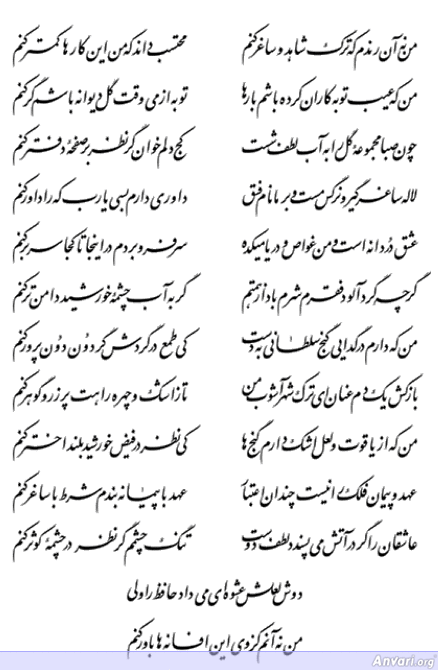 من نه آن رندم که ترک شاهد و ساغر کنم محتسب داند که من این کارها کمتر کنم
من که عیب توبه کاران کرده باشم بارها توبه از می وقت گل دیوانه باشم گر کنم
چون صبا مجموعهٔ گل را به آب لطف شست کج دلم خوان گر نظر بر صفحهٔ دفتر کنم
لاله ساغر گیر و نرگس مست و بر ما نام فسق داوری دارم بسی یارب که را داور کنم
عشق دردانه است و من غواص و دریا میکده سر فرو بردم در اینجا تا کجا سر بر کنم
گرچه گرد آلود فقرم شرم باد از همتم گر به آب چشمهٔ خورشید دامن تر کنم
من که دارم در گدایی گنج سلطانی به دست کی طمع در گردش گردون دون پرور کنم
بازکش یک دم عنان ای ترک شهر آشوب من تا ز اشک و چهره راهت پر زر و گوهر کنم
من که از یاقوت و لعل اشک دارم گنج ها کی نظر در فیض خورشید بلند اختر کنم
عهد و پیمان فلک را نیست چندان اعتبار عهد با پیمانه بندم شرط با ساغر کنم
عاشقان را گر در آتش می پسندد لطف دوست تنگ چشمم گر نظر در چشمهٔ کوثر کنم
دوش لعلش عشوه ای می داد حافظ را ولی
من نه آنم کز وی این افسانه ها باور کنم
Anvari.org